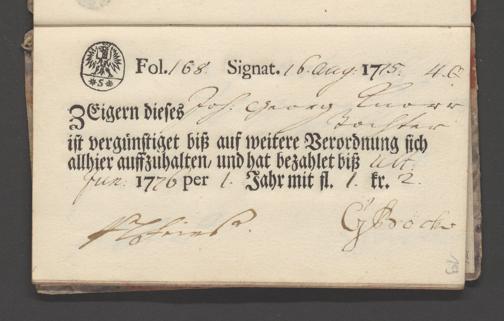 Fol. 168. Signat. 16. Aug. 1775. 4. C
*S*
Zeigern dieses Joh. Georg Knorr
Tochter
ist vergünstiget biß auf weitere Verordnung sich
allhier auffzuhalten, und hat bezahlet biß Ult.
Jun. 1776 per 1. Jahr mit fl. 1. kr. 2.
19